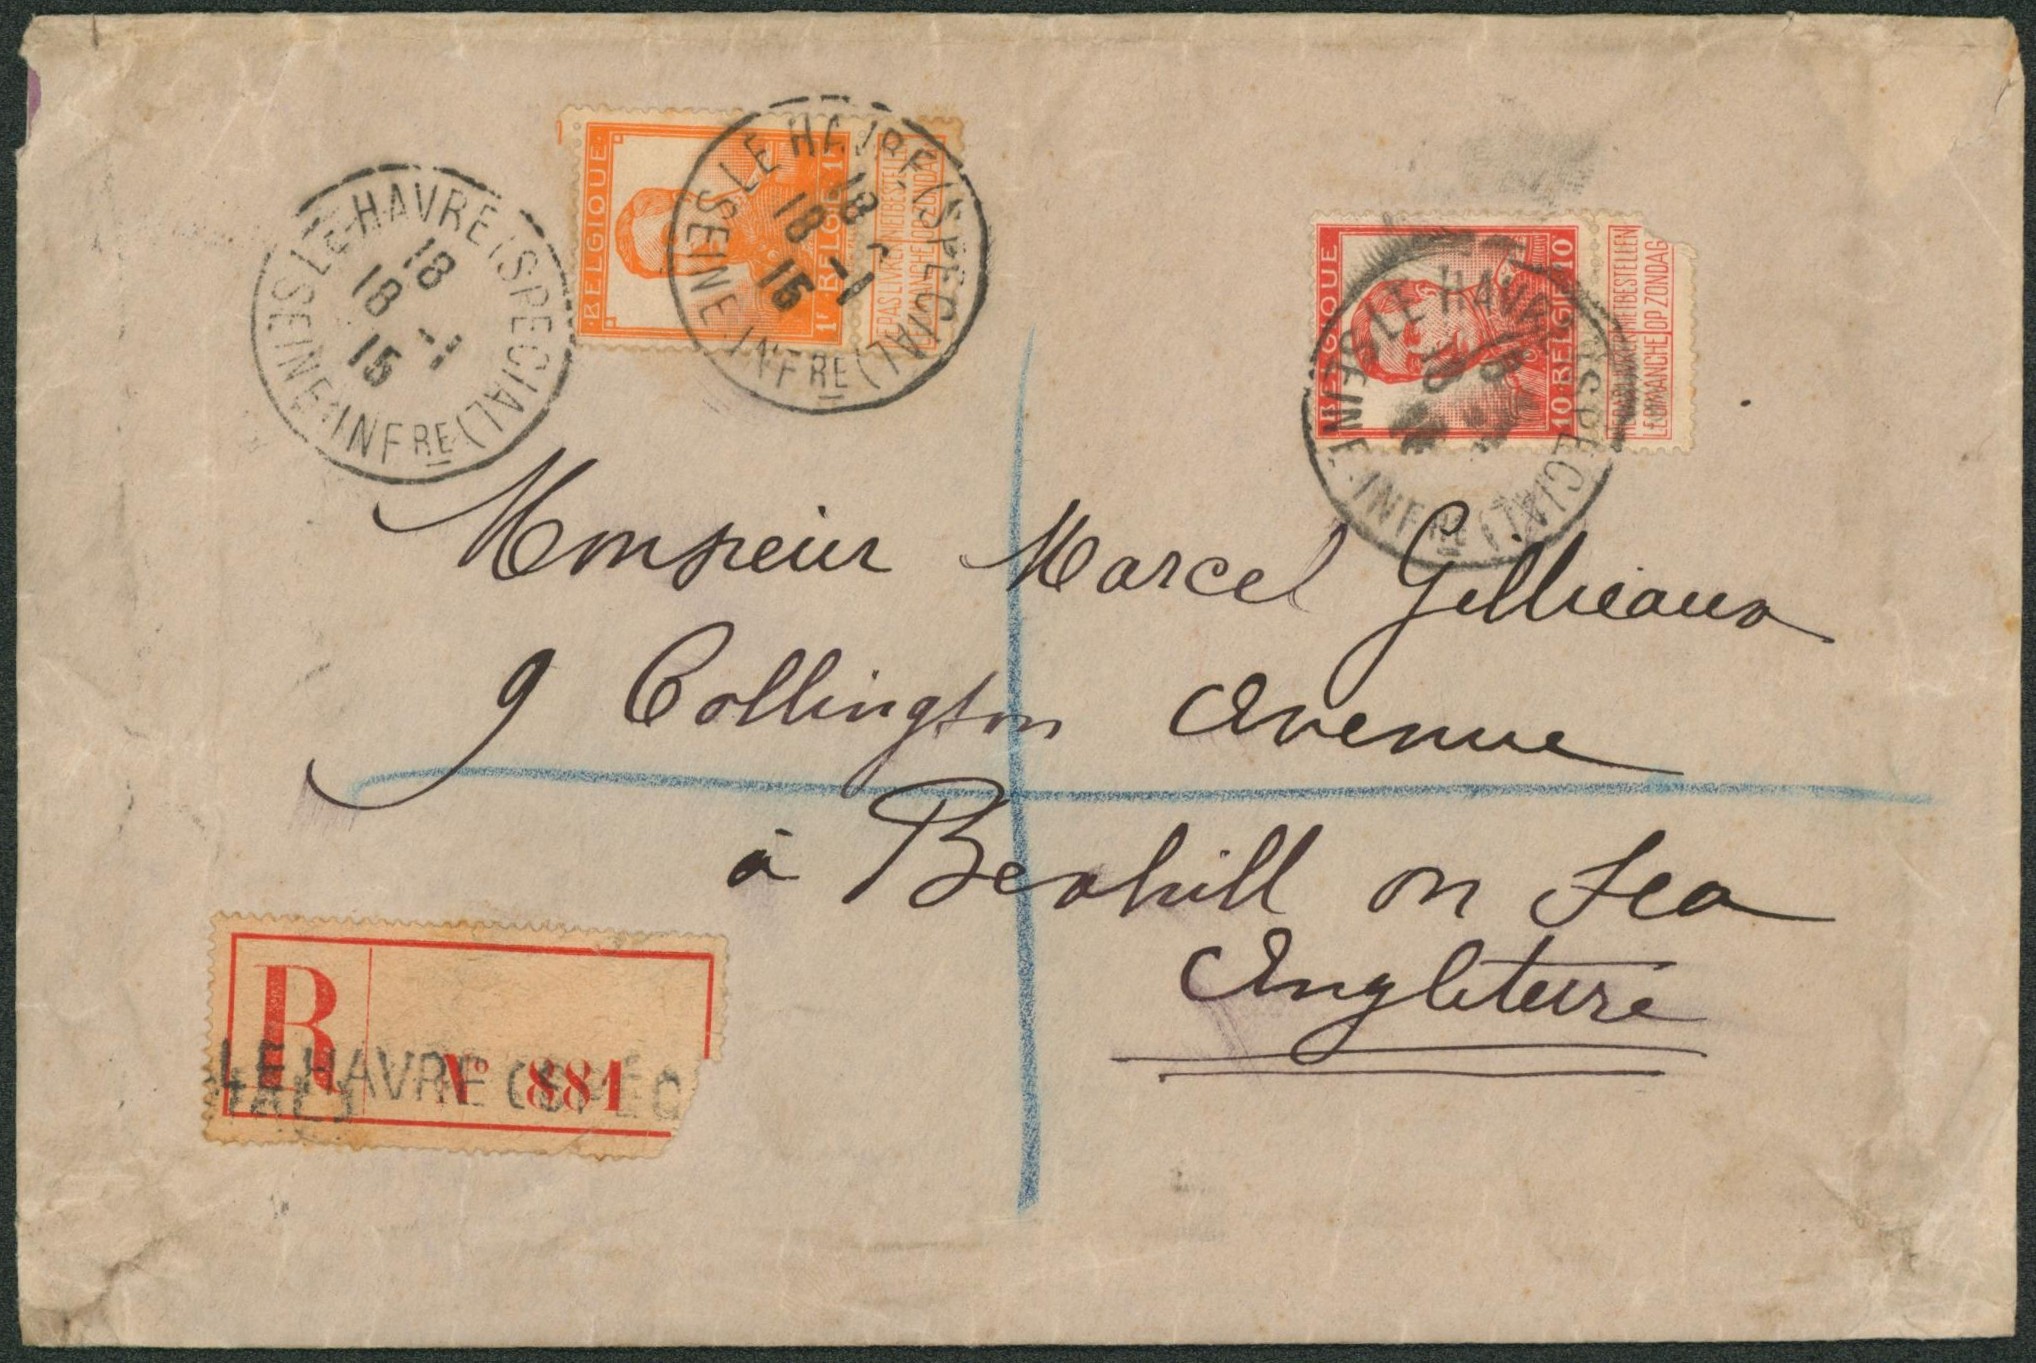 LE HAVRE (SPECIAL)
18
18 -1
15
SEINE INFRE
BELGIQUE
1F BELGIE 1F
NE PAS LIVRER LE DIMANCHE
NIET BESTELLEN OP ZONDAG
LE HAVRE (SPECIAL)
18
18 -1
15
SEINE INFRE
BELGIQUE
10 BELGIE 10
NIET BESTELLEN OP ZONDAG
LE DIMANCHE
LE HAVRE (SPECIAL)
SEINE INFRE
Monsieur Marcel Gillieaux
9 Collington Avenue
à Bexhill on Sea
Angleterre
R
N° 881
LE HAVRE (SPEC